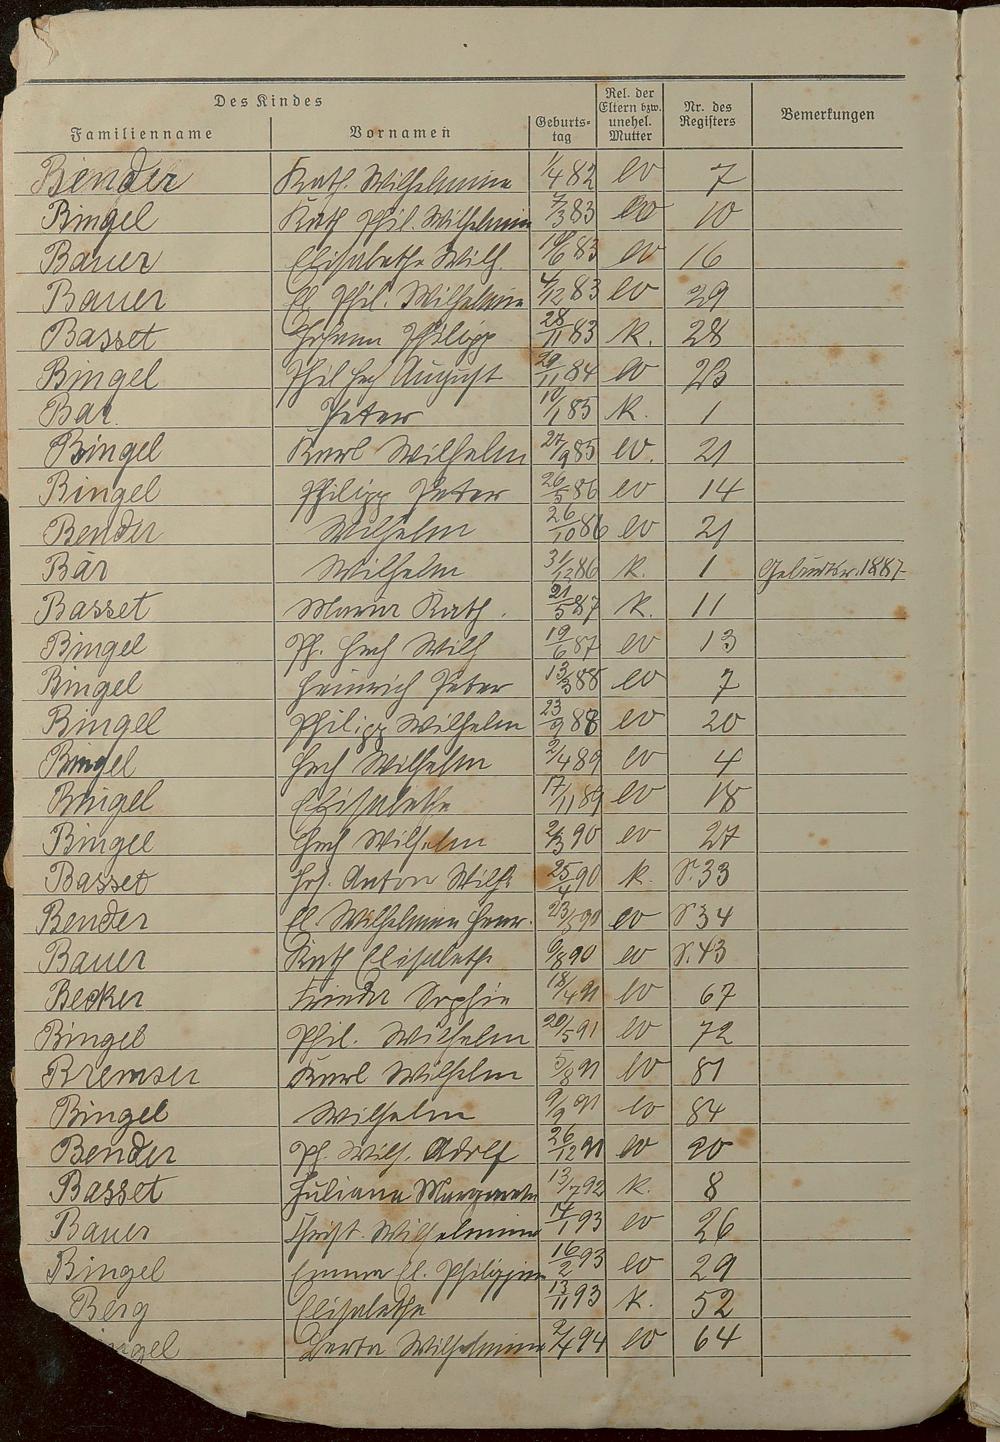 Des Kindes
Familienname Vornamen Geburts-tag Rel. der Eltern bzw. unehel. Mutter Nr. des Registers Bemerkungen
Bender Kath. Wilhelmine 1/4 82 ev 7
Bingel Kath Phil. Wilhelmine 7/3 83 ev 10
Bauer Elisabethe Wilh. 83 ev 16
Bauer El. Phil. Wilhelmine 4/12 83 ev 29
Basset Johann Philipp 28/11 83 k. 28
Bingel Phil Hch August 29/11 84 ev 23
Bär Peter 10/1 85 k. 1
Bingel Karl Wilhelm 27/9 85 ev. 21
Bingel Philipp Peter 26/5 86 ev 14
Bender Wilhelm 26/10 86 ev 21
Bär Wilhelm 31/12 86 k. 1 Geburtsr. 1887
Basset Maria Kath. 21/5 87 k. 11
Bingel Ph. Hch Wilh 19/6 87 ev 13
Bingel Heinrich Peter 13/3 88 ev 7
Bingel Philipp Wilhelm 23/9 88 ev 20
Bingel Hch Wilhelm 2/4 89 ev 4
Bingel Elisabethe 17/11 89 ev 18
Bingel Hch Wilhelm 2/3 90 ev 27
Basset Joh. Anton Wilh. 25/4 90 k. S. 33
Bender El. Wilhelmine Henr. 90 ev S. 34
Bauer Kath Elisabethe 6/8 90 ev S. 43
Becker Frieda Sophie 18/4 91 ev 67
Bingel Phil. Wilhelm 20/5 91 ev 72
Bremser Karl Wilhelm 5/8 91 ev 81
Bingel Wilhelm 9/9 91 ev 84
Bender Ph. Wilh. Adolf 26/12 91 ev 90
Basset Juliana Margarethe 13/7 92 k. 8
Bauer Christ. Wilhelmine 14/1 93 ev 26
Bingel Emma El. Philippine 16/2 93 ev 29
Berg Elisabethe 13/11 93 k. 52
ingel Berta Wilhelmine 2/4 94 ev 64